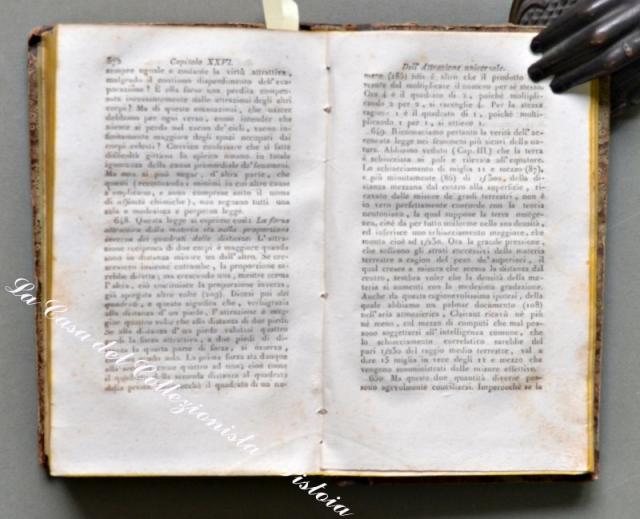 Capitolo XXVI.
sempre uguale e costante la virtù attrattiva,
malgrado il continuo dispendimento dell'eva-
porazione? E ella forse una perdita compen-
sata incessantemente dalle attrazioni degli altri
corpi? Ma di queste emanazioni, che uscire
debbono per ogni verso, come intender che
niente si perda nel vacuo de' cieli, vacuo in-
finitamente maggiore degli spazi occupati dai
corpi celesti? Convien confessare che sì fatte
difficoltà gittano lo spirito umano in totale
ignoranza della causa primordiale de' fenomeni.
Ma non si può negar, d'altra parte, che
questi (escludendo i minimi in cui altre cause
s'implicano, e sono comprese sotto il nome
di affinità chimiche), non seguano tutti una
sola e medesima e perpetua legge.
648. Questa legge si esprime così: La forza
attrattiva della materia sta nella proporzione
inversa dei quadrati delle distanze. L'attra-
zione reciproca di due corpi è maggiore quando
sono in distanza minore un dall'altro. Se cre-
scessero insieme entrambe, la proporzione sa-
rebbe diretta; ma crescendo una, mentre scema
l'altra, ciò costituisce la proporzione inversa,
già spiegata altre volte (109). Dicesi poi dei
quadrati, e questo significa che, verbigrazia
alla distanza d'un piede, l'attrazione è mag-
gior quattro volte che alla distanza di due piedi.
Se alla distanza d'un piede valutasi quattro
la forza attrattiva, a due piedi di di-
la quarta parte di forza, si osserva,
solo. La prima forza sta dunque
alla seconda come quattro ad uno; così come
il quadrato della seconda distanza al quadrato
della prima. il quadrato di un nu-
Dell' Attrazione universale.
mero (185) non è altro che il prodotto
vante dal moltiplicare il numero per sè stesso.
Ora 4 è il quadrato di 2, poichè moltipli-
cando 2 per 2, si raccoglie 4. Per la stessa
ragione 1 è il quadrato di 1, poichè molti-
plicando 1 per 1, si ottiene 1.
649. Riconosciamo pertanto la verità dell'ac-
cennata legge nei fenomeni più sicuri della na-
tura. Abbiamo veduto (Cap. III.) che la terra
è schiacciata ai poli e rilevata all'equatore.
Lo schiacciamento di miglia 11 e mezzo (87),
e più minutamente (86) di 1/300, della di-
stanza mezzana dal centro alla superficie, ri-
cavato dalle misure de' gradi terrestri, non è
in vero perfettamente concorde con la teoria
neutoniana, la qual suppone la terra omoge-
nea, cioè da per tutto uniforme nella sua densità,
ed inferisce uno schiacciamento maggiore, che
monta cioè ad 1/230. Ora la grande pressione,
che soffrono gli strati successivi della materia
terrestre a cagion del peso de' superiori, il
qual cresce a misura che scema la distanza dal
centro, sembra voler che la densità della ma-
teria si aumenti con la medesima gradazione.
Anche da questa ragionevolissima ipotesi, della
quale abbiamo un palmar documento (108)
nell'aria atmosferica, Clairaut ricavò nè più
nè meno, col mezzo di computi che mal pos-
sono soggettarsi all'intelligenza comune, che
lo schiacciamento correlativo sarebbe del
pari 1/230 del raggio medio terrestre, val a
dire 15 miglia in vece degli 11 e mezzo che
vengono somministrati dalle misure effettive.
650. Ma queste due quantità diverse pos-
sono agevolmente conciliarsi. Imperocchè se la
La Casa del Collezionista
Pistoia